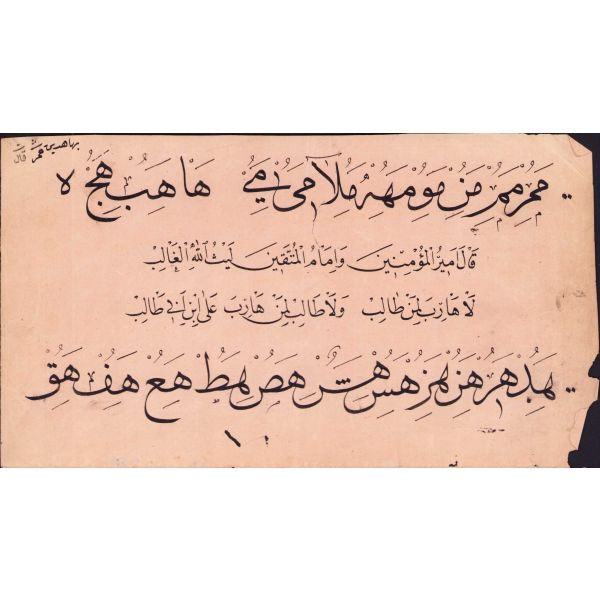 ممر ممم من مو مهه ملا مى مے ها هب هج ه
قال امير المؤمنين وامام المتقين ليث الله الغالب
لا هارب لمن طالب ولا طالب لمن هارب على ابن ابى طالب
هد هر هز هس هش هص هط هع هف هق